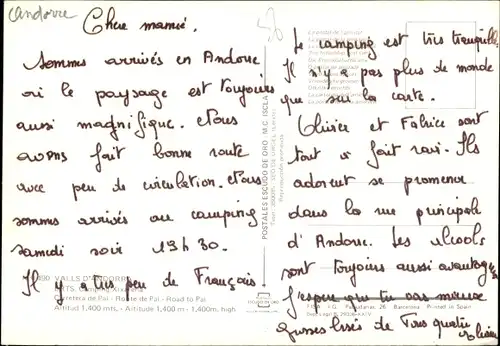 Andorre
Chère mamie.
Sommes arrivés en Andorre
où le paysage est toujours
aussi magnifique. Nous
avons fait bonne route
avec peu de circulation. Nous
sommes arrivés au camping
samedi soir 19h30.
Il y a très peu de Français.
58
Le camping est très tranquille
Il n'y a pas plus de monde
que sur la carte.
Olivier et Fabrice sont
tout à fait ravi. Ils
adorent se promener
dans la rue principale
d'Andorre. Les alcools
sont toujours aussi avantageux
J'espère que tu vas mieux
Grosses bises de Tous quatre
490 VALLS D'ANDORRA
Carretera de Pal - Route de Pal - Road to Pal
Altitud 1.400 mts. - Altitude 1,400 m - 1,400 m. high
POSTALES ESCUDO DE ORO M.C. ISCLA
ESCUDO DE ORO
26 - Barcelona Printed in Spain